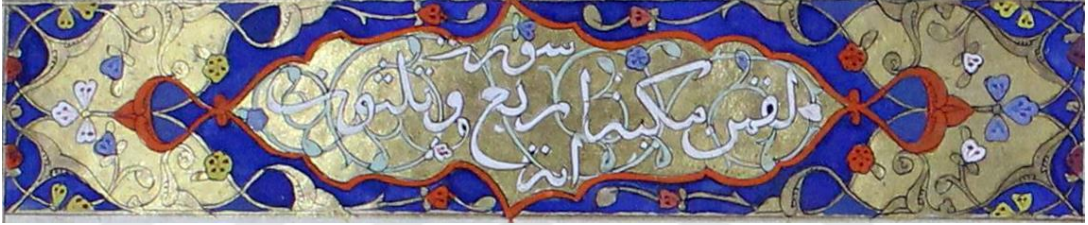 سورة
لقمن مكية اربع وثلثون
اية